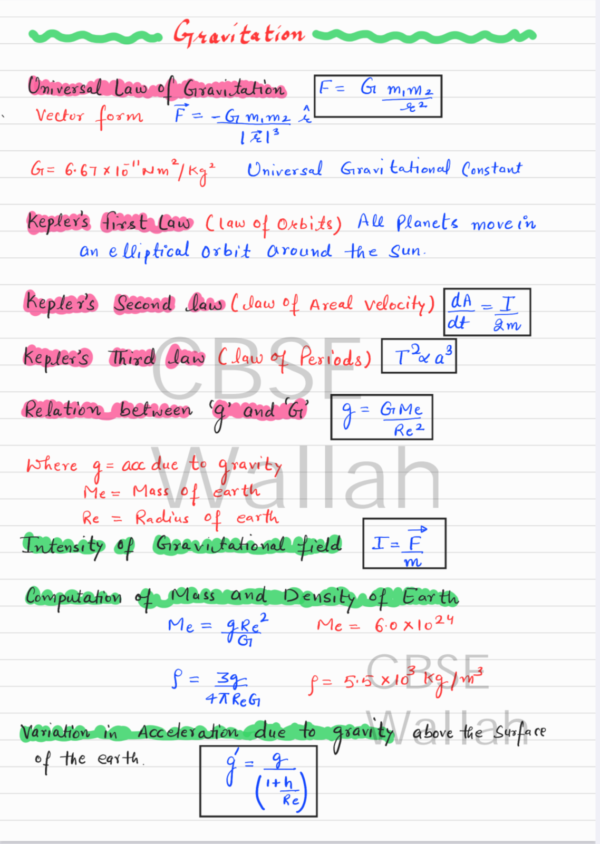 Gravitation
Universal Law of Gravitation F = G m₁m₂ / r²
Vector form F⃗ = -G m₁m₂ / |r⃗|³ r̂
G = 6.67 × 10⁻¹¹ Nm²/Kg² Universal Gravitational Constant
Kepler's first Law (Law of Orbits) All Planets move in
an elliptical orbit around the Sun.
Kepler's Second law (Law of Areal Velocity) dA/dt = I/2m
Kepler's Third law (law of Periods) T² ∝ a³
CBSE
Relation between 'g' and 'G' g = GMe / Re²
Where g = acc due to gravity
Wallah
Me = Mass of earth
Re = Radius of earth
Intensity of Gravitational field I = F⃗/m
Computation of Mass and Density of Earth
Me = gRe²/G Me = 6.0 × 10²⁴
ρ = 3g / 4πReG ρ = 5.5 × 10³ Kg/m³
CBSE
Wallah
Variation in Acceleration due to gravity above the Surface
of the earth.
g' = g / (1 + h/Re)